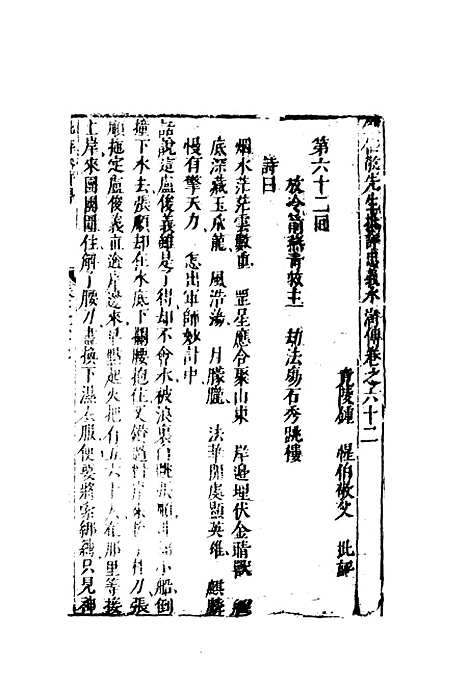 伯敬先生批評忠義水滸傳卷之六十二
竟陵鍾　惺伯敬父　批評
第六十二回
放冷箭燕青救主　劫法場石秀跳樓
詩曰
烟水茫茫雲數重　罡星應合聚山東　岸邊埋伏金睛獸
底深藏玉爪龍　風浩蕩　月朦朧　法華開處顯英雄　麒麟
慢有擎天力　怎出軍師妙計中
話說這盧俊義雖是了得却不會水被浪裏白跳張順
小船倒
撞下水去張順却在水底下攔腰抱住又
張
順拖定盧俊義直逩岸邊來早點起火把有五六十人在那里等接
上岸來團團圍住解了腰刀盡換下濕衣服便要將索綁縛只見神